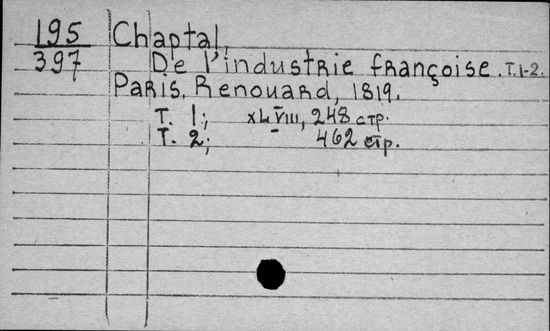 195 Chaptal.
397 De l'industrie françoise. T.1-2.
Paris, Renouard, 1819.
T. 1; XLVIII, 248 стр.
T. 2; 462 стр.